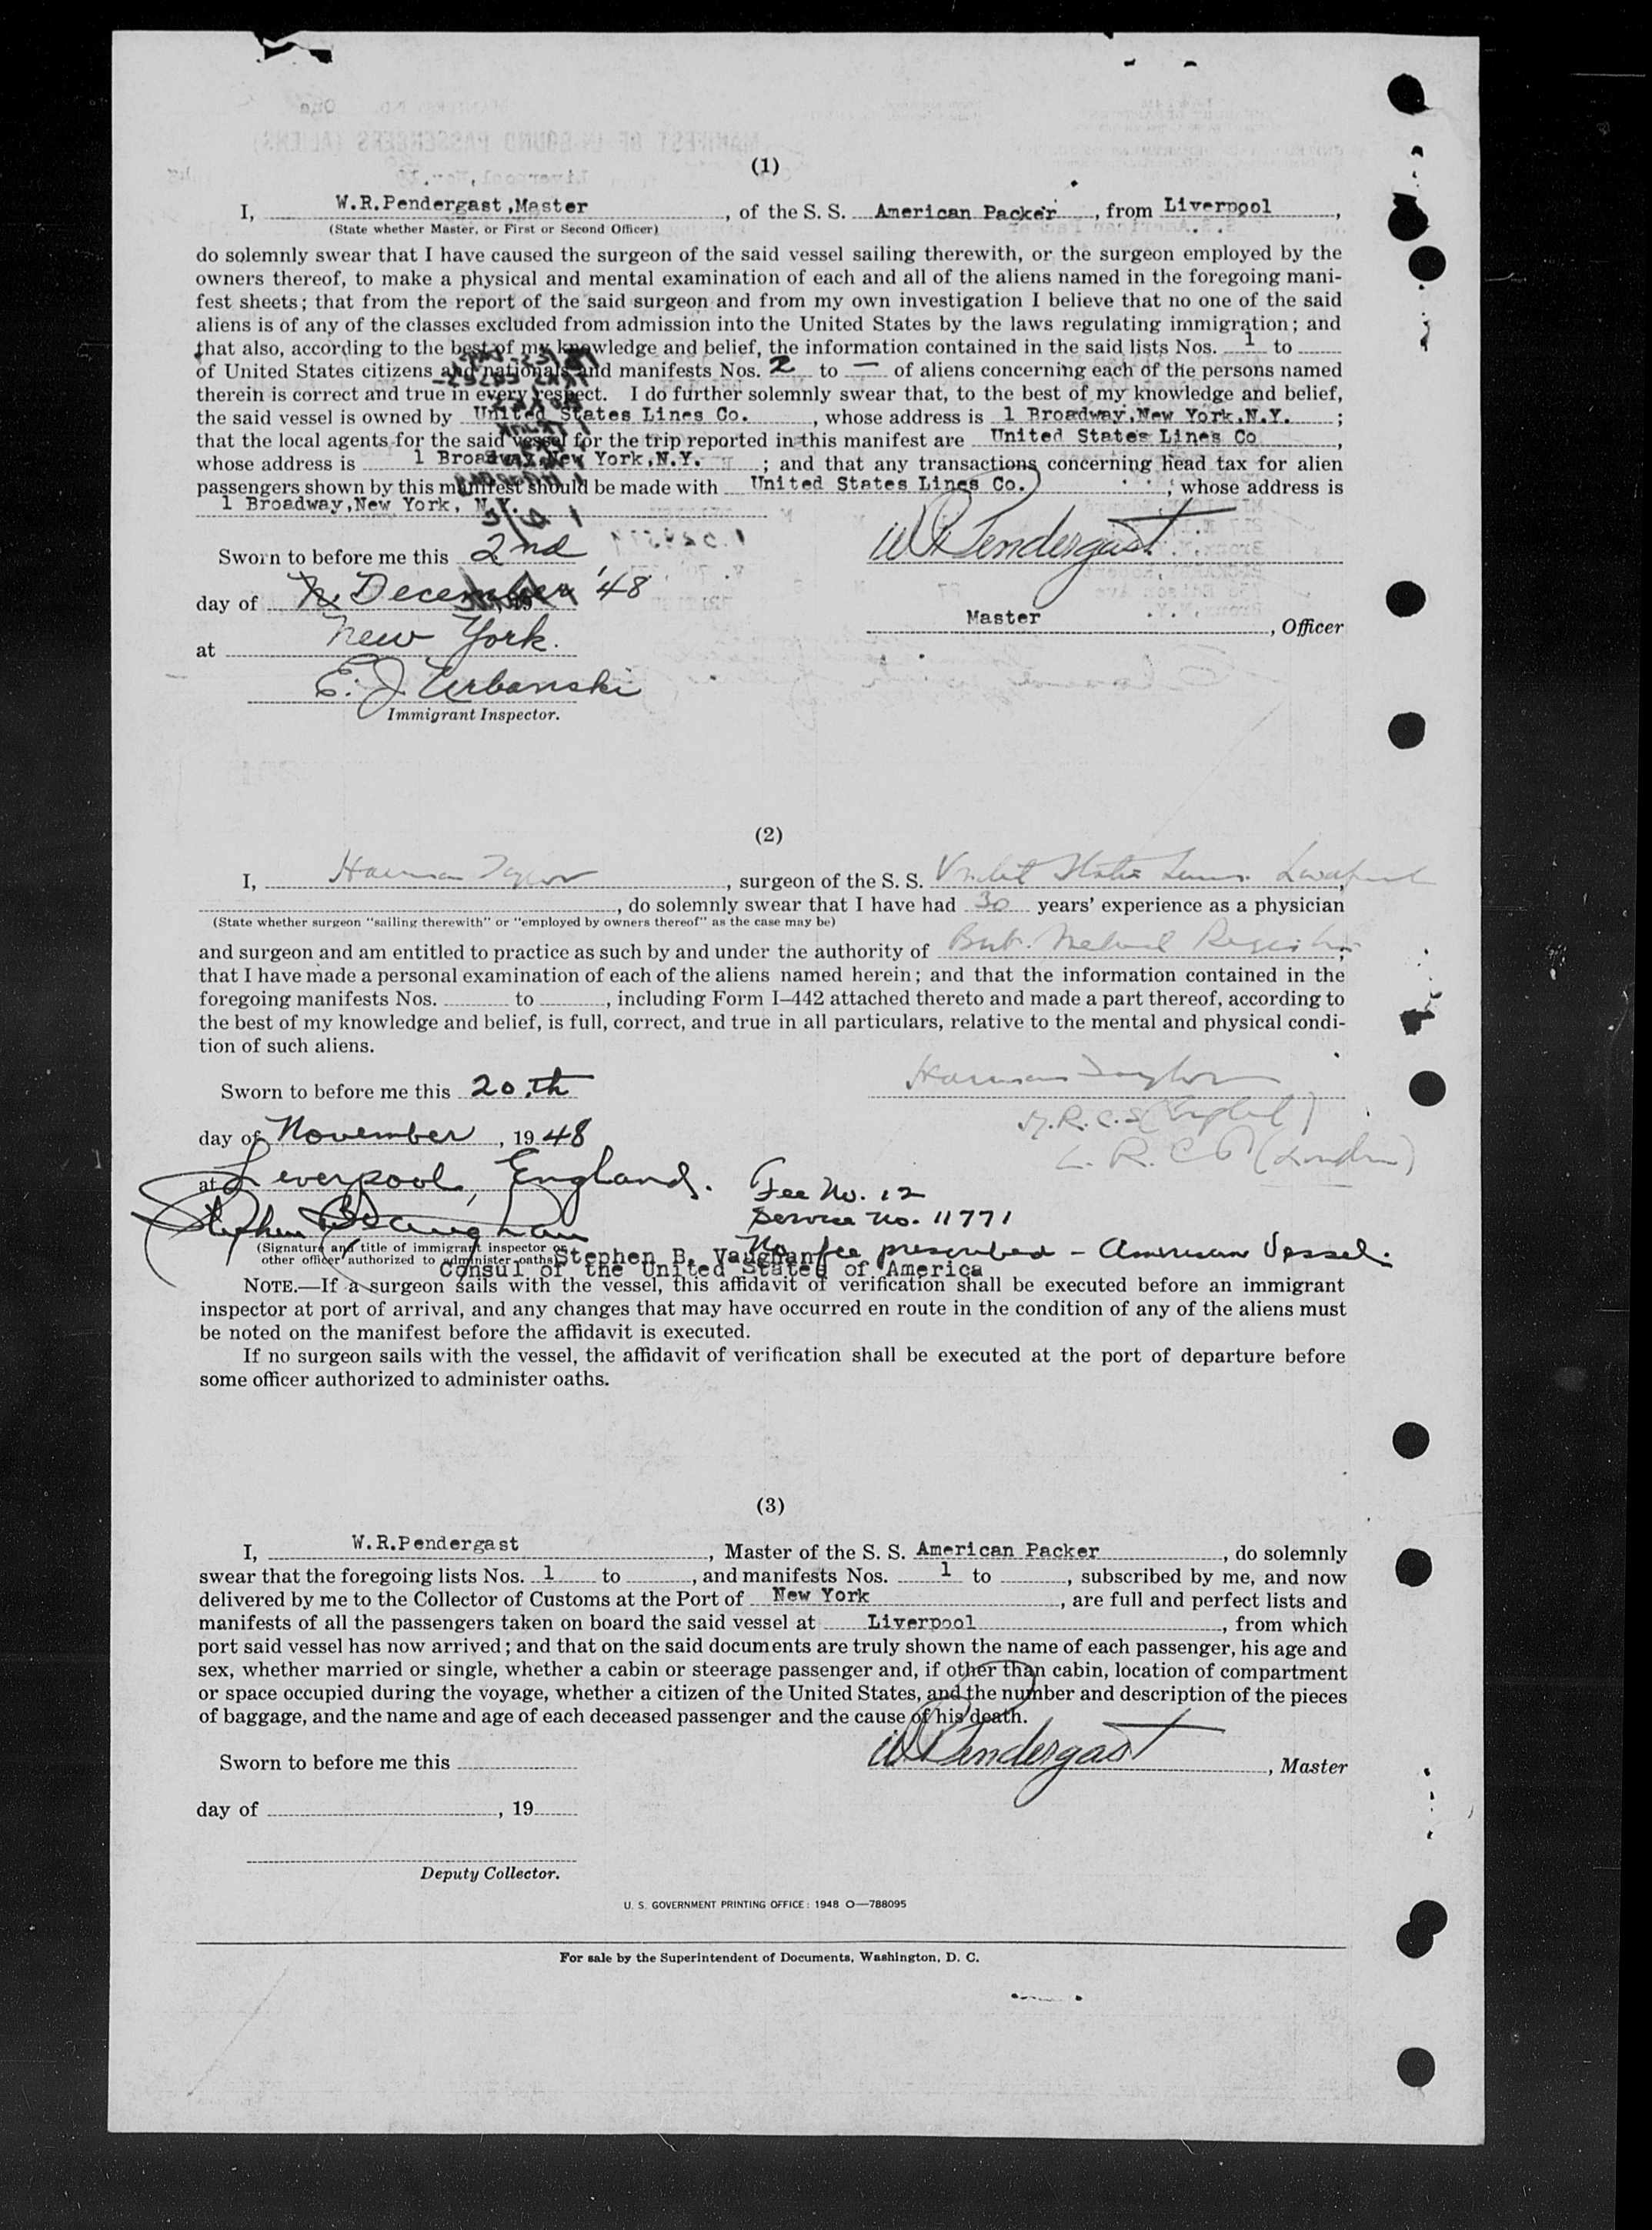 (1)
I, W.R.Pendergast,Master, of the S. S. American Packer, from Liverpool,
(State whether Master, or First or Second Officer)
do solemnly swear that I have caused the surgeon of the said vessel sailing therewith, or the surgeon employed by the
owners thereof, to make a physical and mental examination of each and all of the aliens named in the foregoing mani-
fest sheets; that from the report of the said surgeon and from my own investigation I believe that no one of the said
aliens is of any of the classes excluded from admission into the United States by the laws regulating immigration; and
that also, according to the best of my knowledge and belief, the information contained in the said lists Nos. 1 to
of United States citizens and nationals and manifests Nos. 2 to — of aliens concerning each of the persons named
therein is correct and true in every respect. I do further solemnly swear that, to the best of my knowledge and belief,
the said vessel is owned by United States Lines Co., whose address is 1 Broadway,New York,N.Y. ;
that the local agents for the said vessel for the trip reported in this manifest are United States Lines Co,
whose address is 1 Broadway,New York,N.Y. ; and that any transactions concerning head tax for alien
passengers shown by this manifest should be made with United States Lines Co. ; whose address is
1 Broadway,New York, N.Y.
Sworn to before me this 2nd
W R Pendergast
day of December '48
Master, Officer
at New York.
E. J. Urbanski
Immigrant Inspector.
(2)
I, Harman Taylor, surgeon of the S. S. United States Lines. Liverpool
, do solemnly swear that I have had 30 years' experience as a physician
(State whether surgeon "sailing therewith" or "employed by owners thereof" as the case may be)
and surgeon and am entitled to practice as such by and under the authority of Brit. Medical Register;
that I have made a personal examination of each of the aliens named herein; and that the information contained in the
foregoing manifests Nos. to , including Form I–442 attached thereto and made a part thereof, according to
the best of my knowledge and belief, is full, correct, and true in all particulars, relative to the mental and physical condi-
tion of such aliens.
Sworn to before me this 20th
Harman Taylor
M.R.C.S (England)
day of November, 1948
L.R.C.P (London)
at Liverpool, England.
Fee No. 12
Stephen B Vaughan
Service No. 11771
(Signature and title of immigrant inspector or
No fee prescribed - American Vessel.
other officer authorized to administer oaths) Stephen B. Vaughan
Consul of the United States of America
NOTE.—If a surgeon sails with the vessel, this affidavit of verification shall be executed before an immigrant
inspector at port of arrival, and any changes that may have occurred en route in the condition of any of the aliens must
be noted on the manifest before the affidavit is executed.
If no surgeon sails with the vessel, the affidavit of verification shall be executed at the port of departure before
some officer authorized to administer oaths.
(3)
I, W.R.Pendergast, Master of the S. S. American Packer, do solemnly
swear that the foregoing lists Nos. 1 to , and manifests Nos. 1 to , subscribed by me, and now
delivered by me to the Collector of Customs at the Port of New York, are full and perfect lists and
manifests of all the passengers taken on board the said vessel at Liverpool, from which
port said vessel has now arrived; and that on the said documents are truly shown the name of each passenger, his age and
sex, whether married or single, whether a cabin or steerage passenger and, if other than cabin, location of compartment
or space occupied during the voyage, whether a citizen of the United States, and the number and description of the pieces
of baggage, and the name and age of each deceased passenger and the cause of his death.
Sworn to before me this
W R Pendergast, Master
day of , 19
Deputy Collector.
U. S. GOVERNMENT PRINTING OFFICE: 1948 O—788095
For sale by the Superintendent of Documents, Washington, D. C.